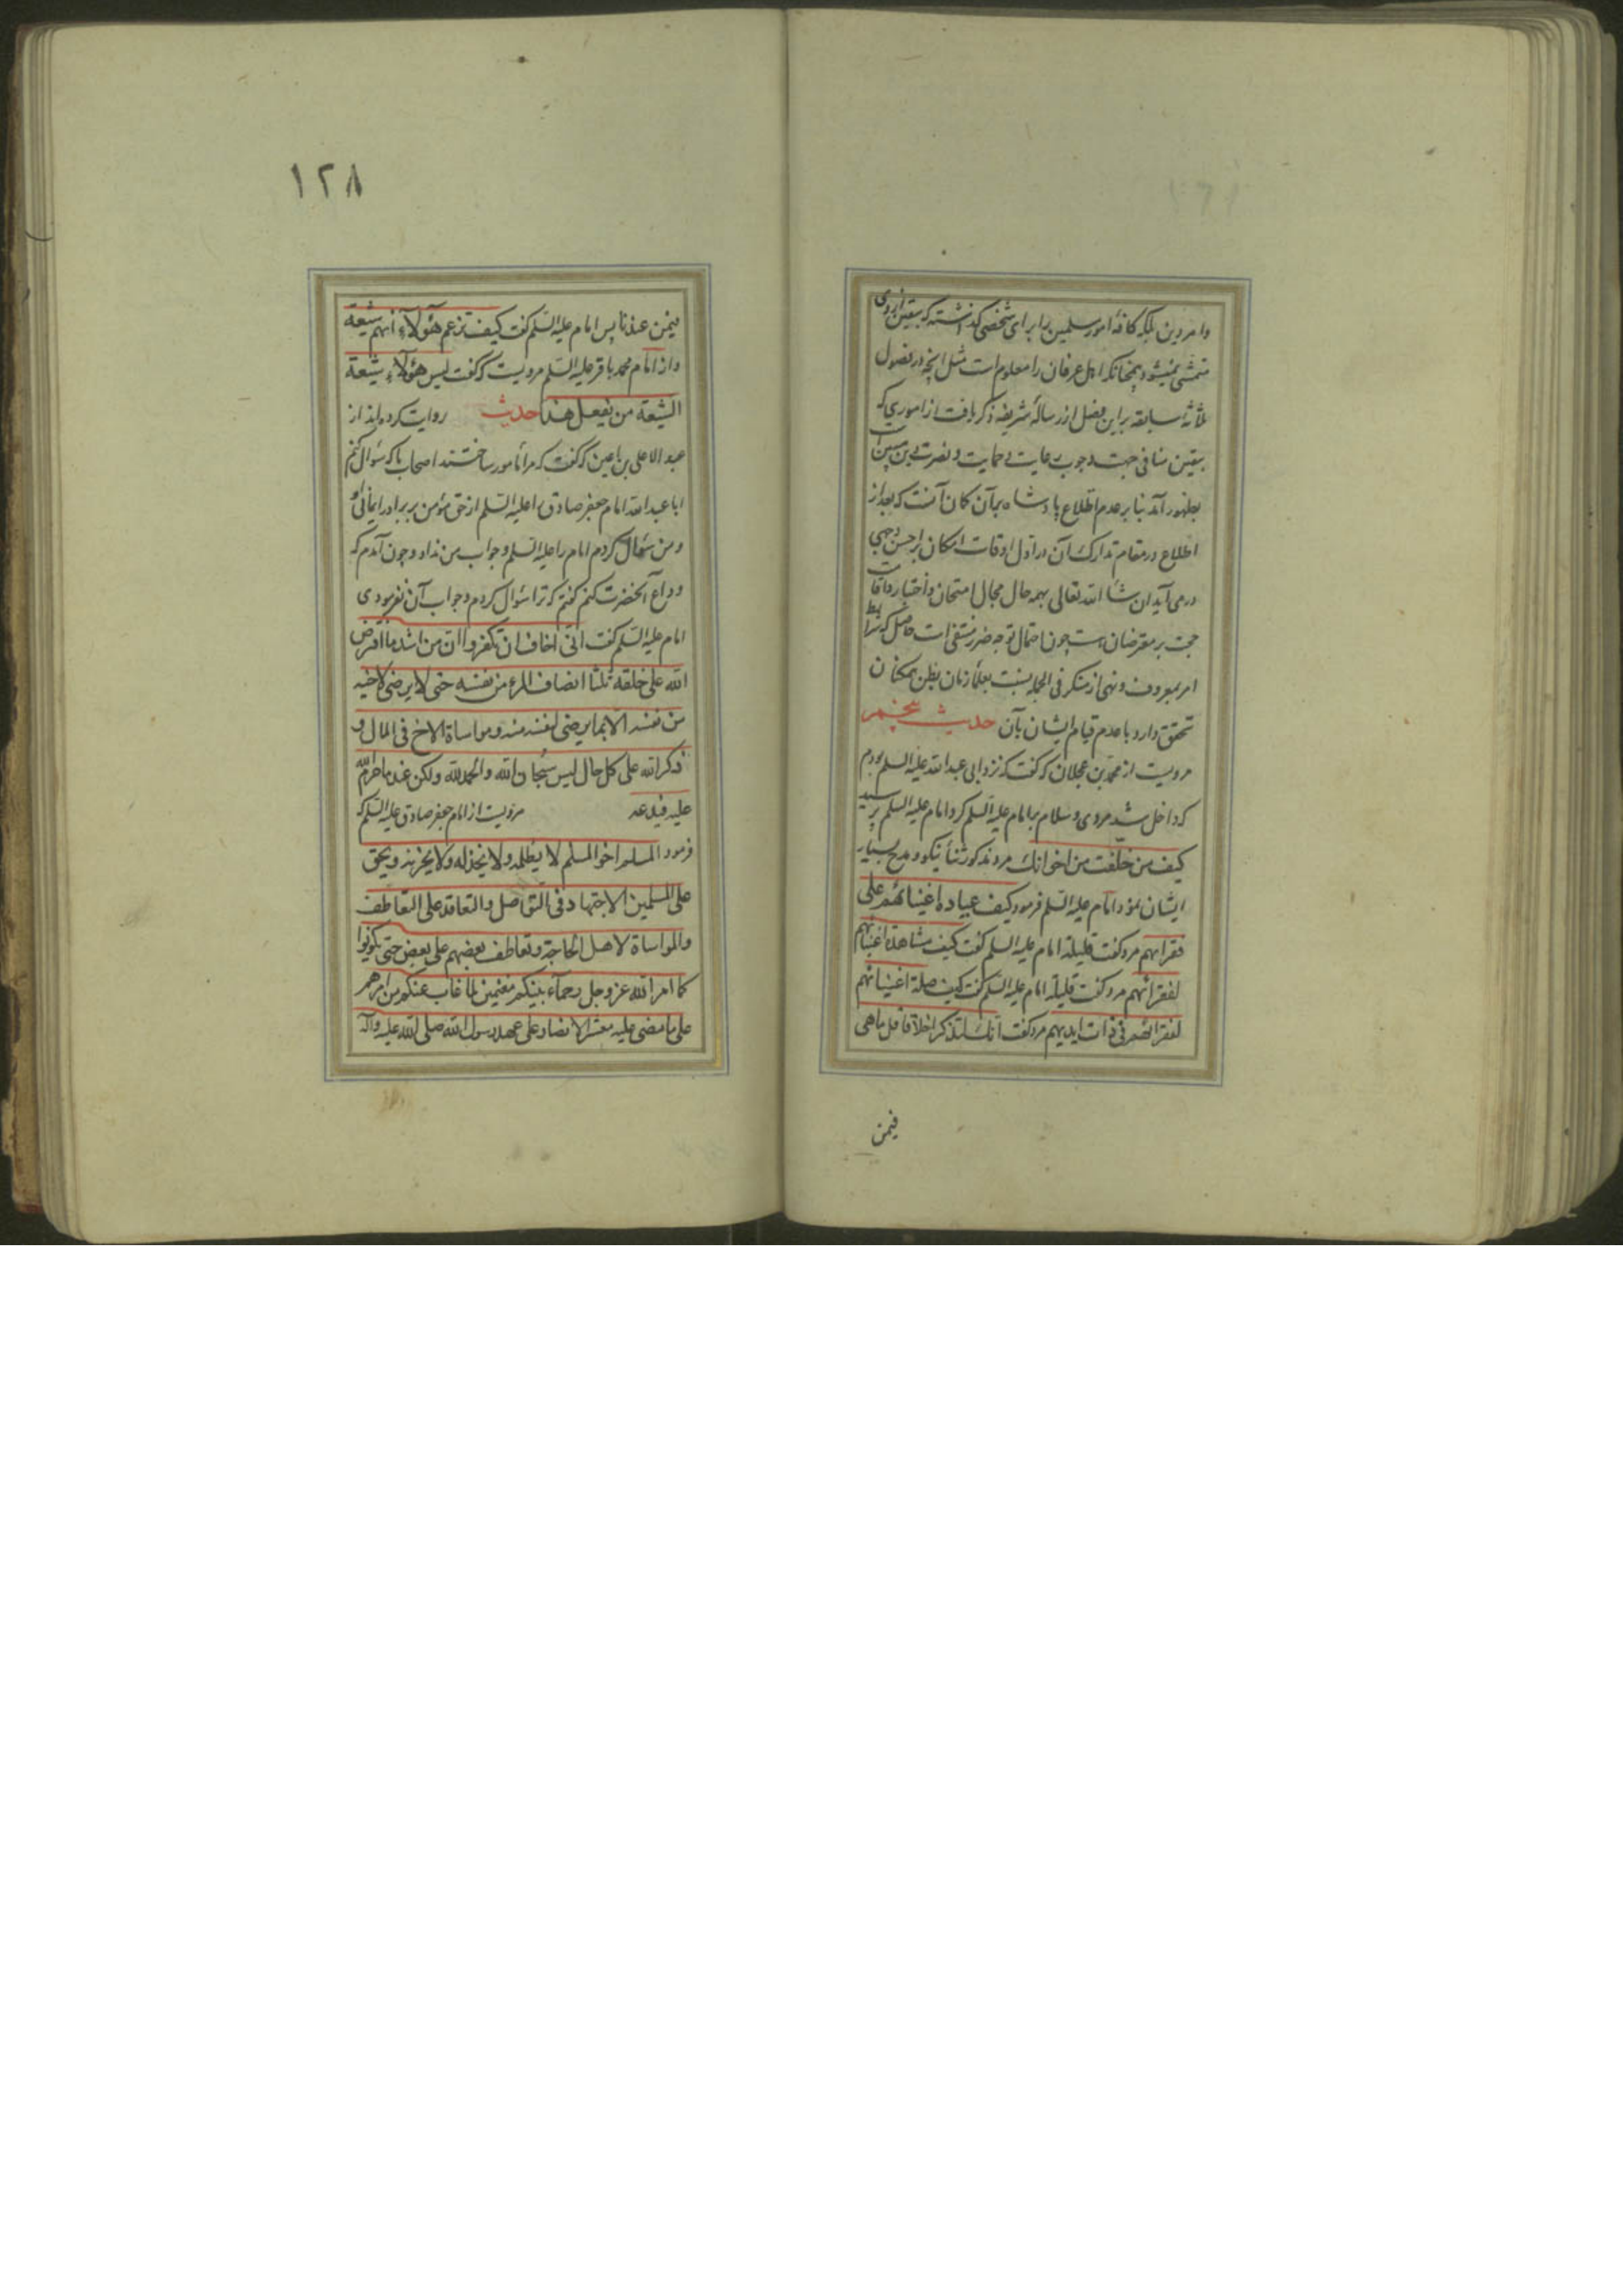 وامر دین بلکه کافهٔ امور مسلمین را برای شخصی گذاشته که بیقین از وی
متمشی نمیشود چنانکه اهل عرفان را معلوم است مثل آنچه در فصول
ثلاثهٔ سابقه براین فصل ازر سالهٔ شریفه ذکر یافت از اموری که
بیقین منافی جهت وجوب رعایت و حمایت و نصرت دین مبین است
بظهور آمد بنابر عدم اطلاع پادشاه بر آن کمان آنست که بعد از
اطلاع در مقام تدارک آن در اول اوقات امکان بر احسن وجهی
در می آید ان شاء الله تعالی بهمه حال مجال امتحان و اختبار و اقامت
حجت بر مقرضان هست چون احتمال توجه ضرر منتفی است حاصل که شرایط
امر بمعروف و نهی از منکر فی الجمله بنسبت بعلمأ زمان بظن همکنان
تحقق دارد با عدم قیام ایشان بآن حدیث پنجم
مرویست از محمد بن عجلان که گفت که نزد ابی عبدالله علیه السلم بودم
که داخل شد مردی و سلام بر امام علیه السلم کرد امام علیه السلم پرسید
کیف من خلّفت من اخوانک مرد مذکور ثنأ نیکو و مدح بسیار
ایشان نمود امام علیه السلم فرمود کیف عیادة اغنیائهم علی
فقرائهم مرد گفت قلیلة امام علیه السلم گفت کیف مشاهدة اغنیائهم
لفقرائهم مرد گفت قلیلة امام علیه السلم گفت کیف صلة اغنیائهم
لفقرائهم فی ذات ایدیهم مرد گفت انک لتذکر اخلاقا قل ما هی
فیمن
١٢٨
فیمن عندنا پس امام علیه السلم گفت کیف تزعم هؤلاء انهم شیعة
و از امام محمد باقر علیه السلم مرویست که گفت لیس هؤلاء شیعة
الشیعة من یفعل هذا حدیث روایت کرده اند از
عبد الاعلی بن اعین که گفت که مرا مامور ساختند اصحاب باکه سؤال کنم
ابا عبدالله امام جعفر صادق را علیه السلم از حق مؤمن بر برادر ایمانی او
و من سؤال کردم امام را علیه السلم و جواب من نداد و چون آمدم که
وداع آنحضرت کنم گفتم که ترا سؤال کردم و جواب آن نفرمودی
امام علیه السلم گفت انی اخاف ان تکفروا ان من اشد ما افترض
الله علی خلقه ثلثا انصاف المرء من نفسه حتی لا یرضی لاخیه
من نفسه الا بما یرضی لنفسه منه و مواساة الاخ فی المال و
ذکر الله علی کل حال لیس سبحان الله والحمدلله ولکن عند ما حرم الله
علیه فیدعه مرویست از امام جعفر صادق علیه السلم که
فرمود المسلم اخو المسلم لا یظلمه ولا یخذله ولا یحزنه ویحق
علی المسلمین الاجتهاد فی التواصل والتعاقد علی التعاطف
والمواساة لاهل الحاجة وتعاطف بعضهم علی بعض حتی تکونوا
کما امر الله عز وجل رحماء بینکم مغتمین لما غاب عنکم من امرهم
علی ما مضی علیه معشر الانصار علی عهد رسول الله صلی الله علیه وآله